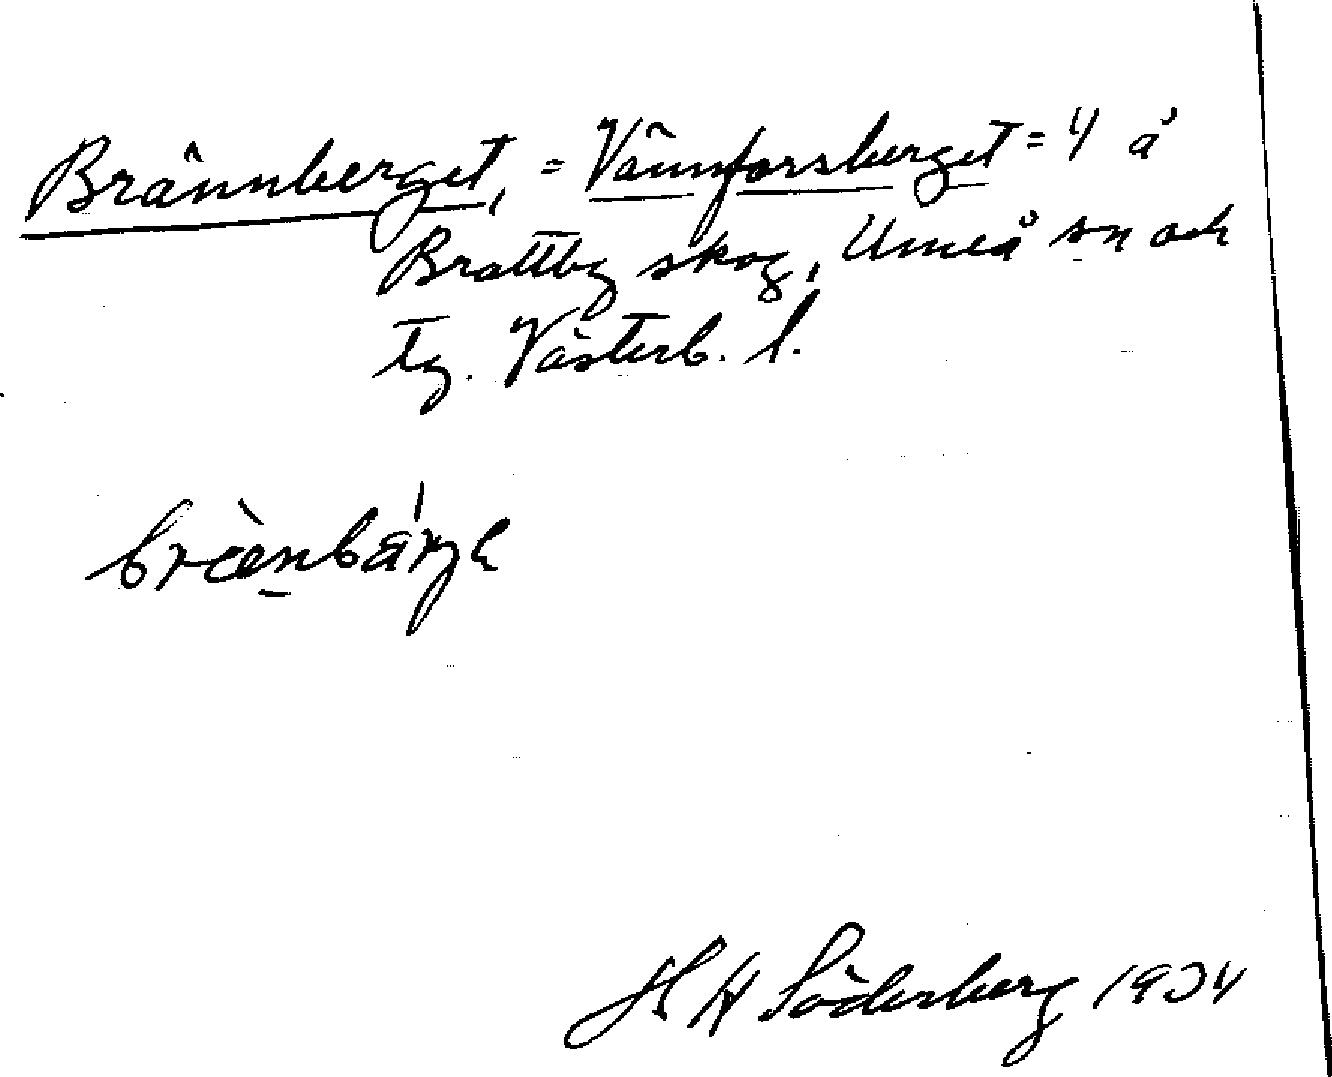 Brännberget, = Vännforsberget = 4 å
Brattby skog, Umeå sn och
tg. Västerb. l.
brὲnbárjə
H H Söderberg 1934